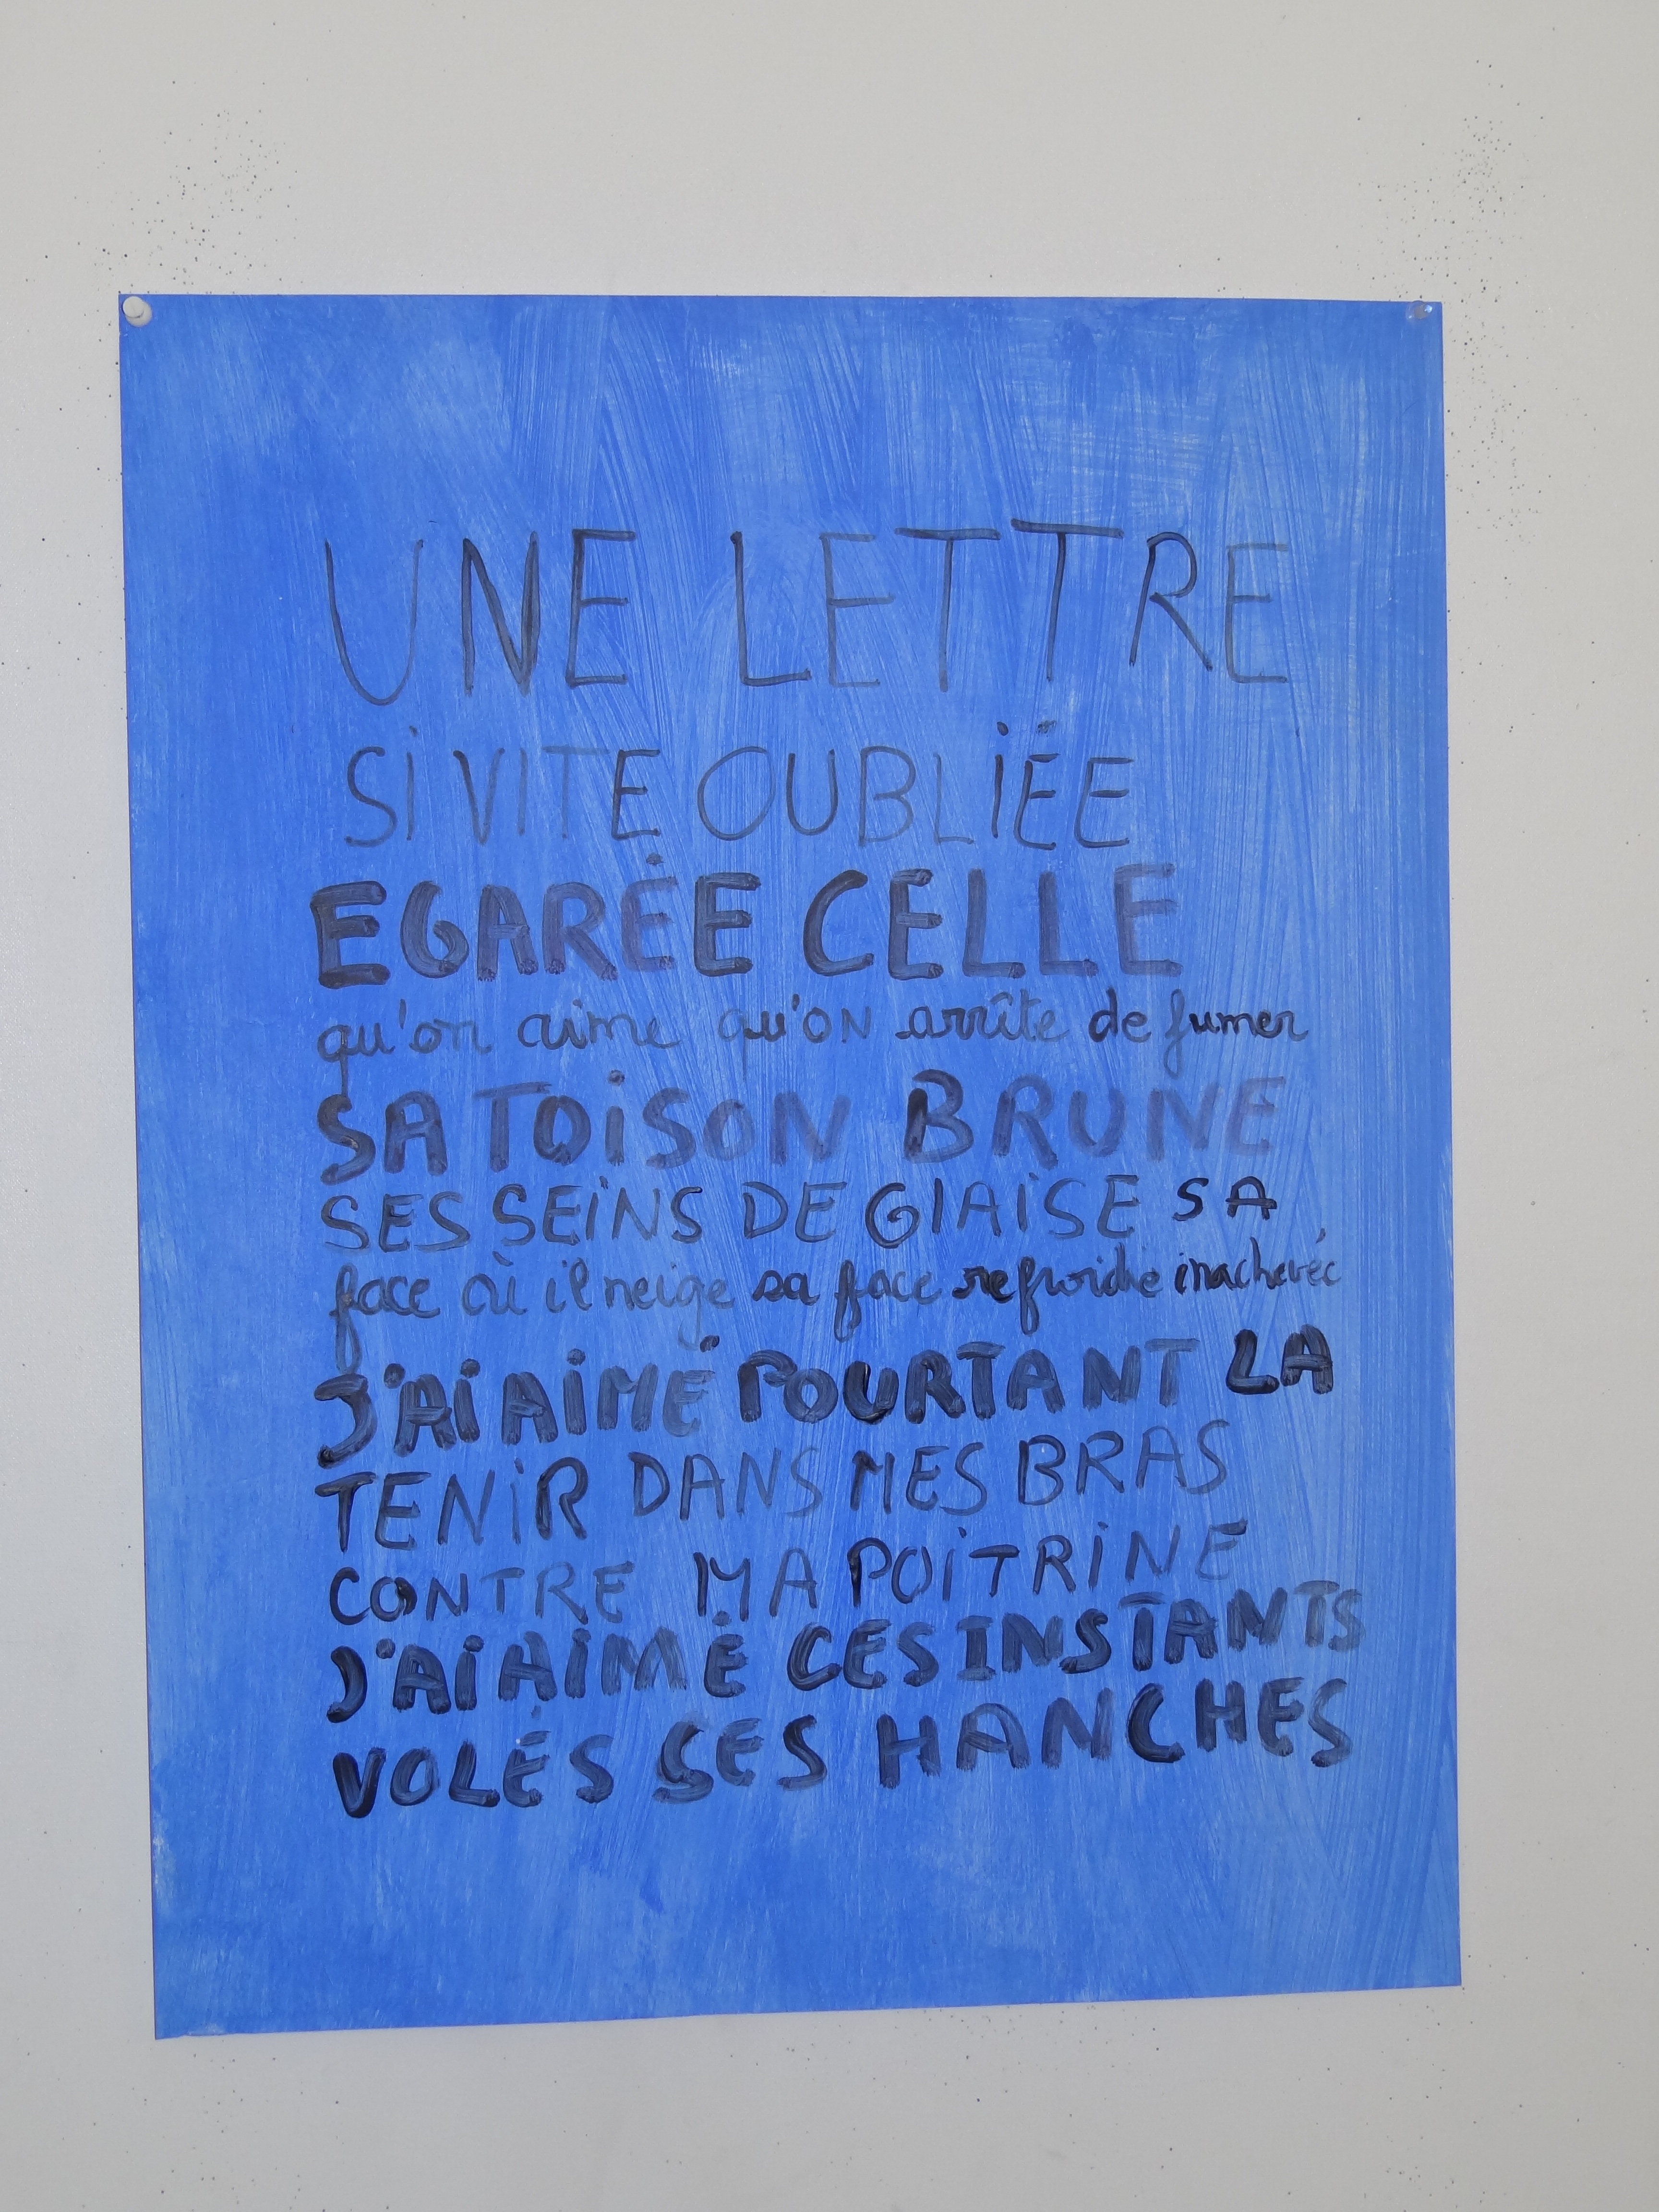 UNE LETTRE
Si VITE OUBLiÉE
EGARÉE CELLE
qu'on aime qu'ON arrête de fumer
SA TOiSON BRUNE
SES SEiNS DE GlAiSE SA
face où il neige sa face refroidie inachevée
J'Ai AiMÉ POURTANT LA
TENiR DANS MES BRAS
CONTRE MA POiTRiNE
J'Ai AiMÉ CES INSTANTS
VOLÉS SES HANCHES